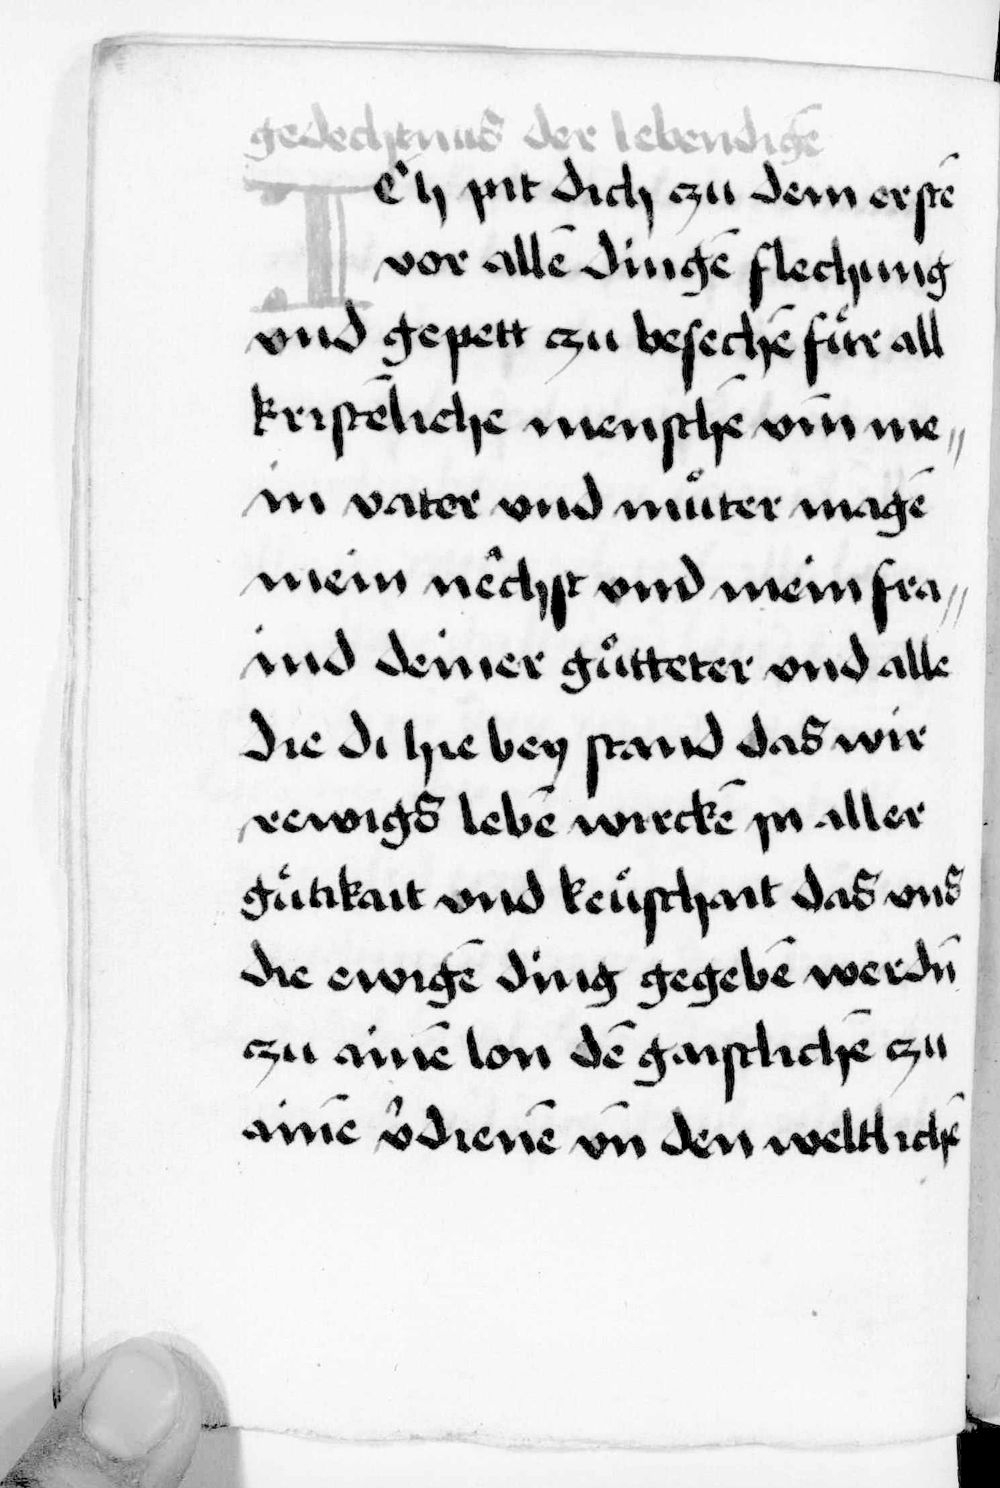 gedechtnus der lebendigē
ICh pit dich zu dem erstē
vor allē dingē flechung
vnd gepett zu besechē fuͤr all
kristēliche menschē vm̄ me〃
in vater vnd muͦter magē
mein nêchst vnd mein fra〃
ind deiner guͦtteter vnd alle
die di hie bey stand das wir
rewigs lebē wirckē in aller
guͤtikait vnd keuͤschait das vns
die ewigē ding gegebē werdn̄
zu ainē lon dē gaistlichē zu
ainē v̂dienē vn̄ den weltlichē